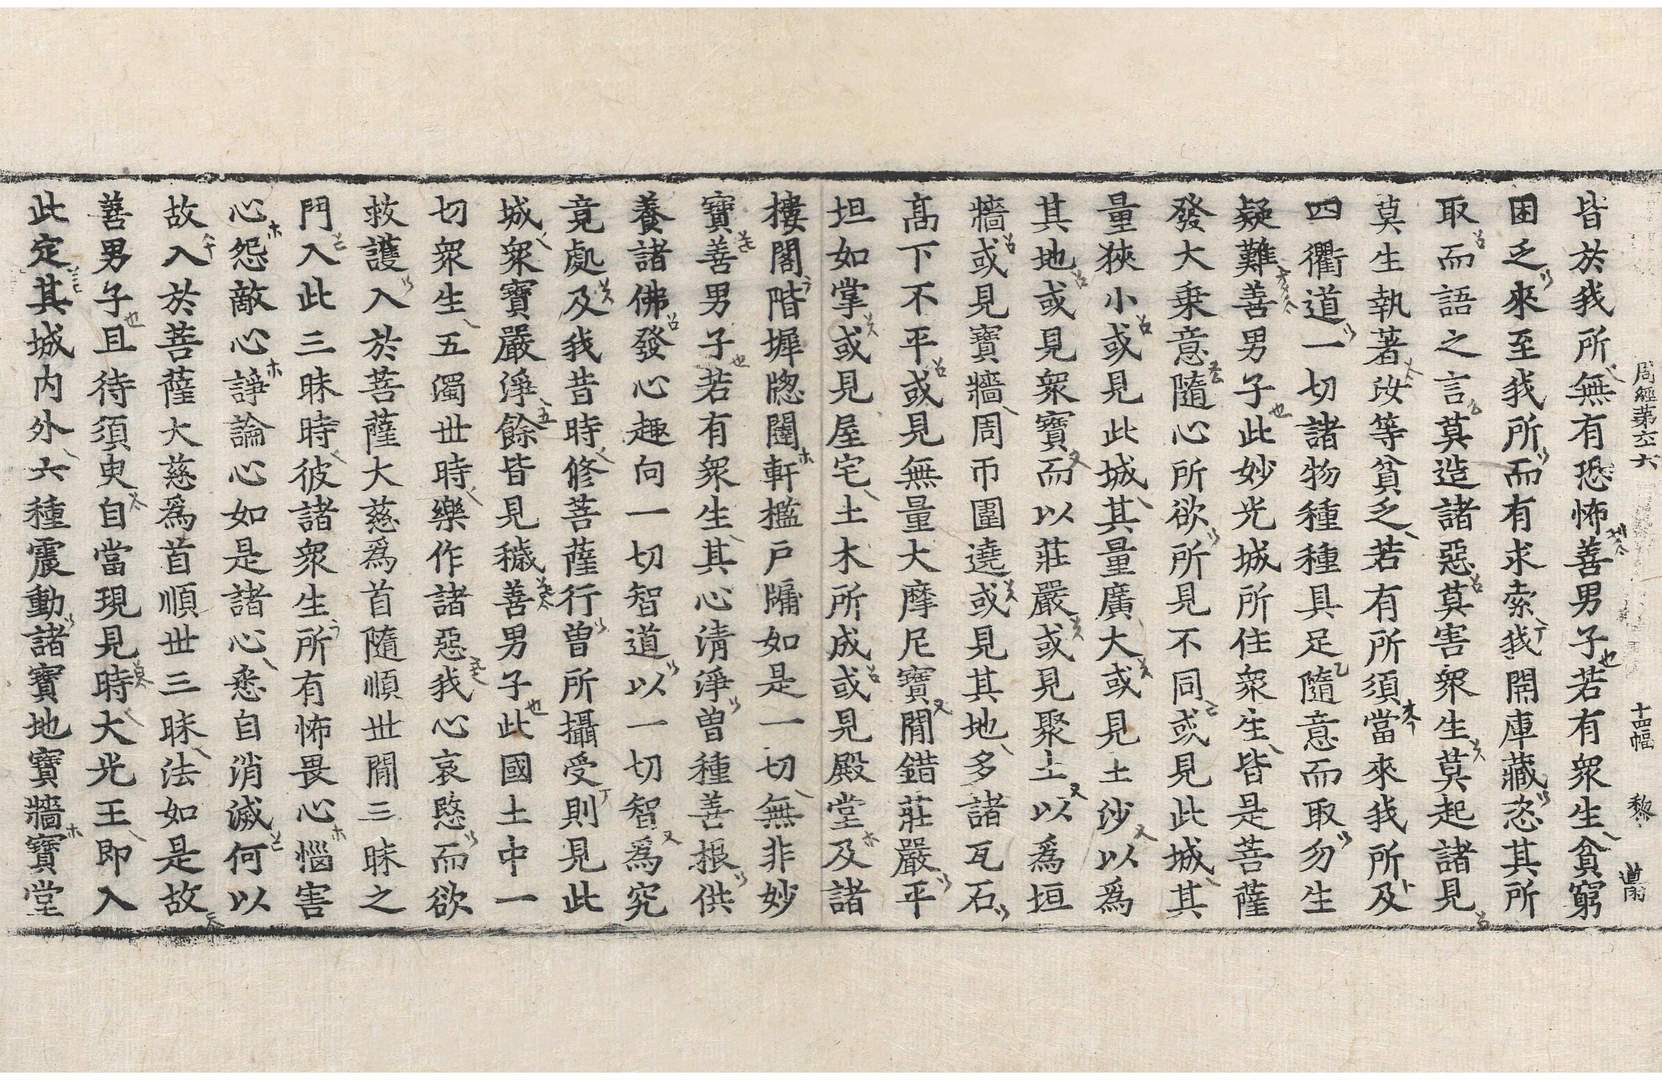 周經第六十六 十四幅
皆於我所無有恐怖善男子若有衆生貧窮
困乏來至我所而有求索我開庫藏恣其所
取而語之言莫造諸惡莫害衆生莫起諸見
莫生執著汝等貧乏若有所須當來我所及
四衢道一切諸物種種具足隨意而取勿生
疑難善男子此妙光城所住衆生皆是菩薩
發大乗意隨心所欲所見不同或見此城其
量狹小或見此城其量廣大或見土沙以爲
其地或見衆寶而以莊嚴或見聚土以爲垣
牆或見寶牆周帀圍遶或見其地多諸瓦石
髙下不平或見無量大摩尼寶閒錯莊嚴平
坦如掌或見屋宅土木所成或見殿堂及諸
樓閣階墀牎闥軒檻戶牖如是一切無非妙
寶善男子若有衆生其心清淨曽種善根供
養諸佛發心趣向一切智道以一切智爲究
竟處及我昔時修菩薩行曽所攝受則見此
城衆寶嚴淨餘皆見穢善男子此國土中一
切衆生五濁丗時樂作諸惡我心哀愍而欲
救護入於菩薩大慈爲首隨順丗閒三昧之
門入此三昧時彼諸衆生所有怖畏心惱害
心怨敵心諍論心如是諸心悉自消滅何以
故入於菩薩大慈爲首順丗三昧法如是故
善男子且待須臾自當現見時大光王即入
此定其城內外六種震動諸寶地寶牆寶堂